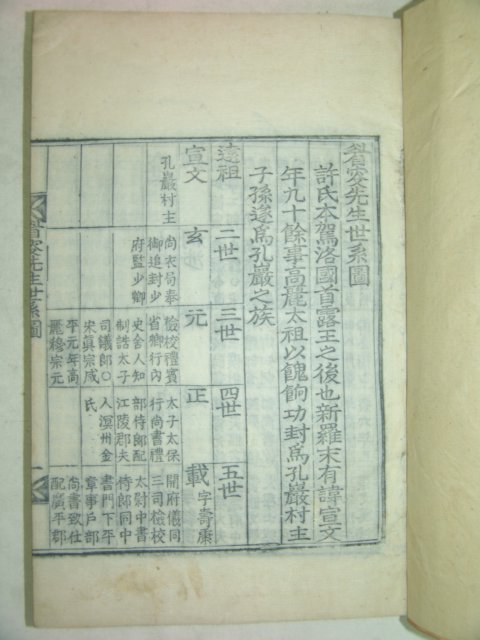 窩先生世系圖
許氏本駕洛國首露王之後也新羅末有諱宣文
年九十餘事高麗太祖以餽餉功封爲孔巖村主
子孫遂爲孔巖之族
遠祖 二世 三世 四世 五世
宣文 玄 元 正 載 字壽康
孔巖村主
尙衣局奉
御追封少
府監少卿
檢校禮賓
省卿行內
史舍人知
制誥太子
司議郞○
宋眞宗咸
平元年高
麗穆宗元
太子太保
行尙書禮
部侍郞配
江陵郡夫
人溟州金
氏
開府儀同
三司檢校
太尉中書
侍郞同中
書門下平
章事戶部
尙書致仕
配廣平郡
窩先生世系圖